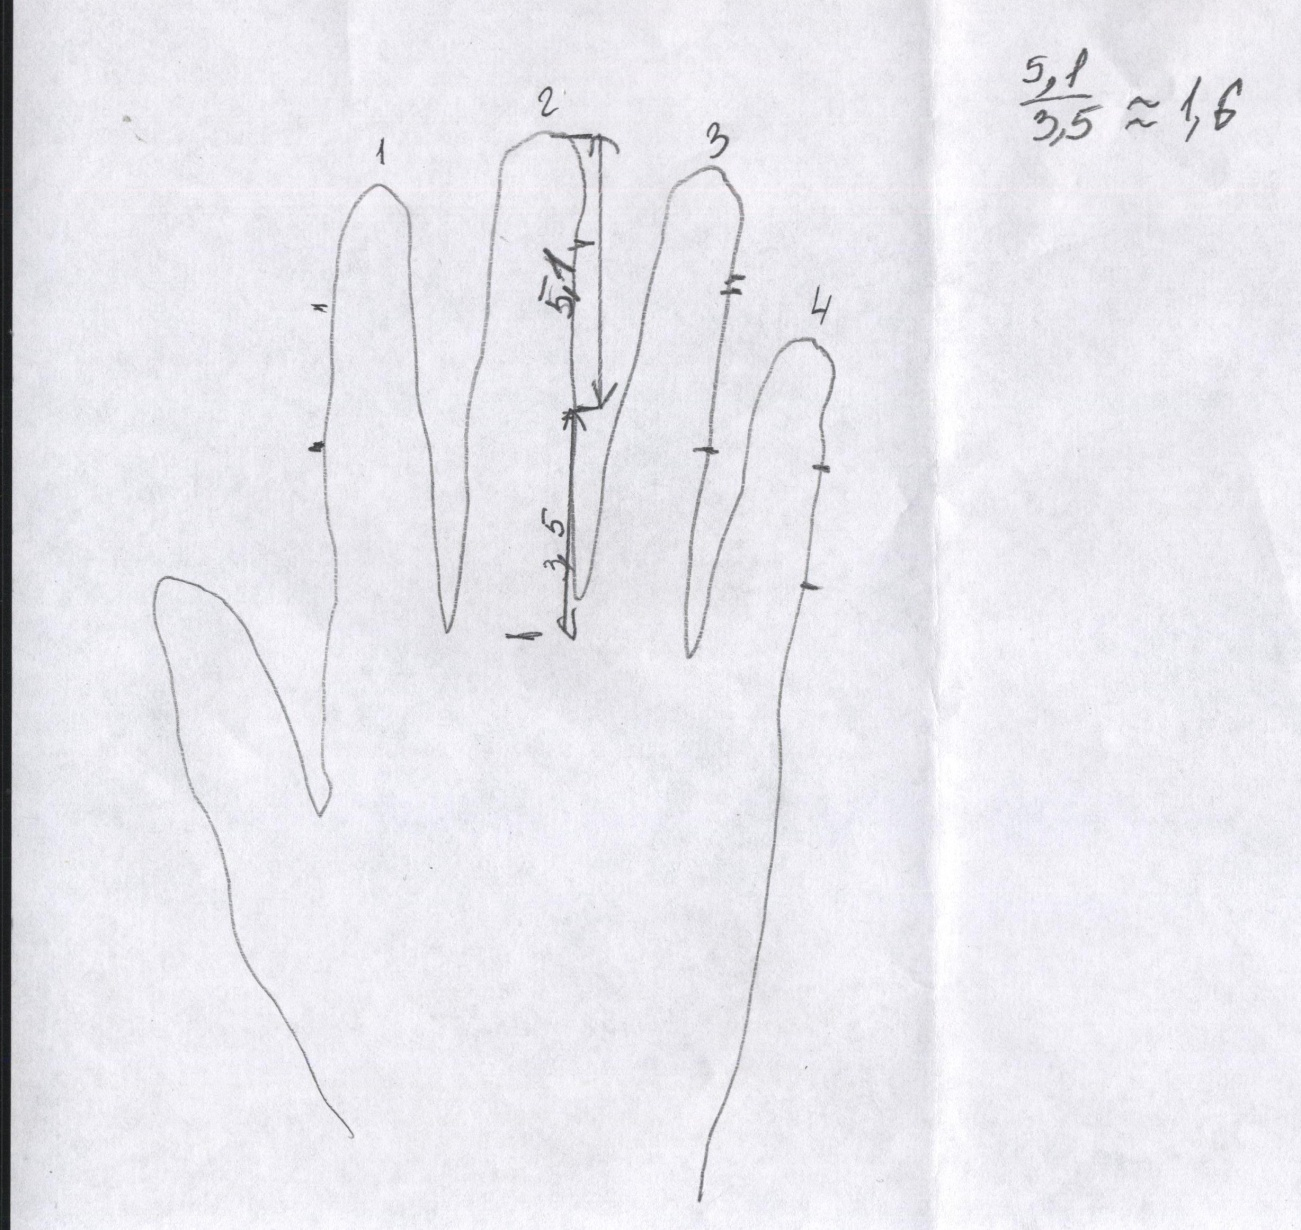 5,1
3,5 ≈ 1,6
2
1
3
4
5,1
3,5